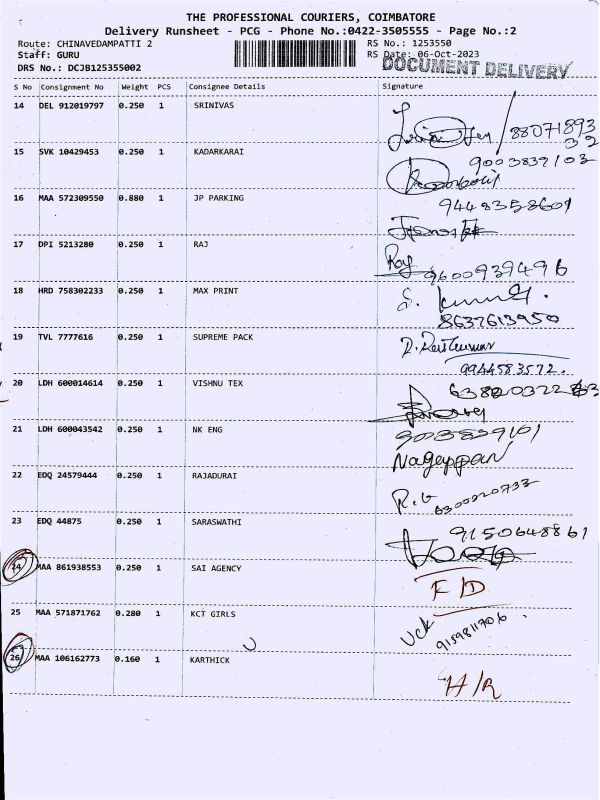 THE PROFESSIONAL COURIERS, COIMBATORE
Delivery Runsheet - PCG - Phone No.:0422-3505555 - Page No.:2
Route: CHINAVEDAMPATTI 2 RS No.: 1253550
Staff: GURU RS Date: 06-Oct-2023
DRS No.: DCJB125355002 DOCUMENT DELIVERY
S No Consignment No Weight PCS Consignee Details Signature
14 DEL 912019797 0.250 1 SRINIVAS
15 SVK 10429453 0.250 1 KADARKARAI
16 MAA 572309550 0.880 1 JP PARKING
9448358601
17 DPI 5213280 0.250 1 RAJ
Roy
9600939496
18 HRD 758302233 0.250 1 MAX PRINT
8637613950
19 TVL 7777616 0.250 1 SUPREME PACK
9944583572.
20 LDH 600014614 0.250 1 VISHNU TEX
21 LDH 600043542 0.250 1 NK ENG
Nagappan
22 EDQ 24579444 0.250 1 RAJADURAI
23 EDQ 44875 0.250 1 SARASWATHI
9150648861
24 MAA 861938553 0.250 1 SAI AGENCY
F/D
25 MAA 571871762 0.280 1 KCT GIRLS
26 MAA 106162773 0.160 1 KARTHICK
H/R